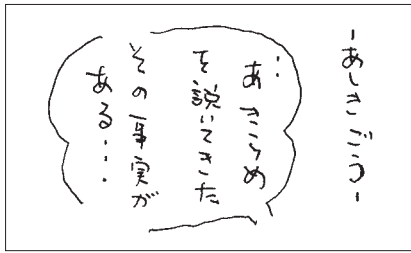 -あしきごう-
：あきらめ
を説いてきた
その事実が
ある…